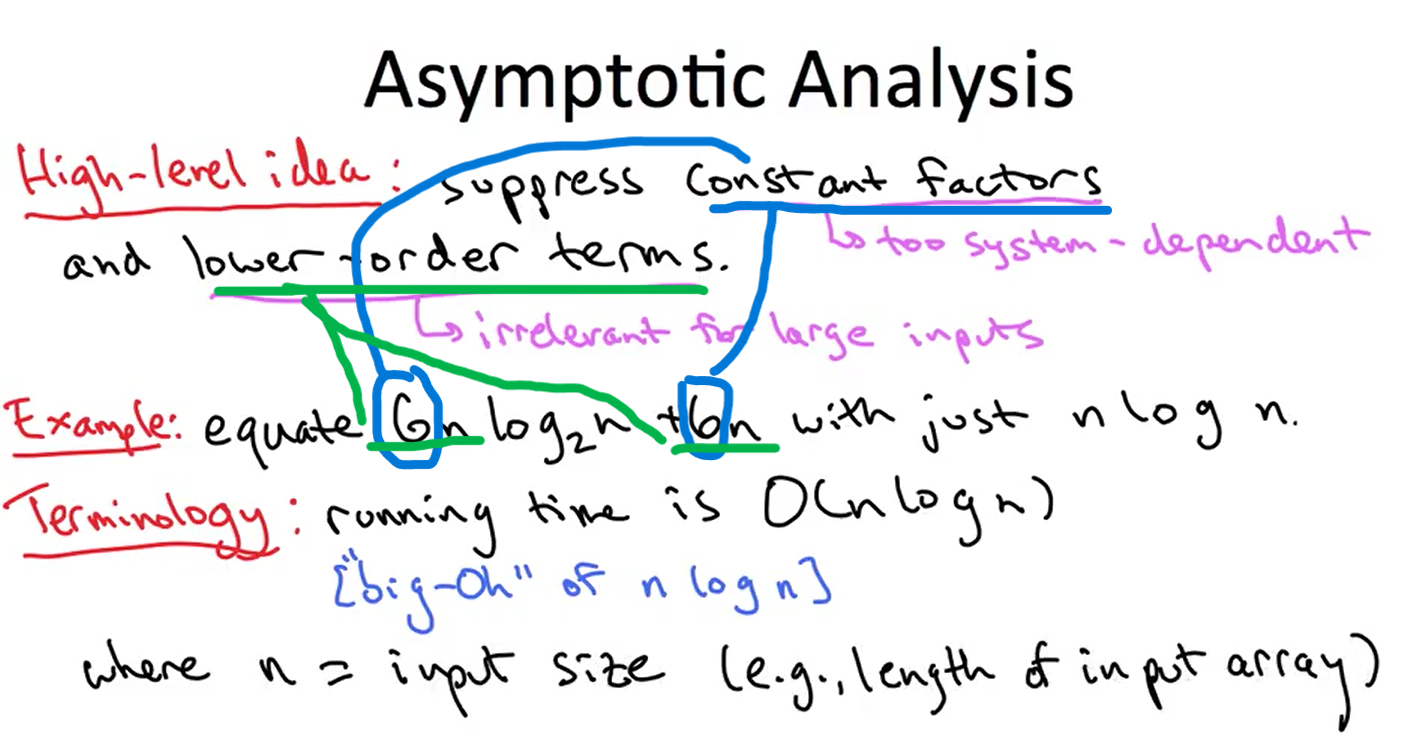 Asymptotic Analysis
High-level idea: suppress constant factors
↳ too system-dependent
and lower-order terms.
↳ irrelevant for large inputs
Example: equate 6n log₂n + 6n with just n log n.
Terminology: running time is O(n log n)
["big-Oh" of n log n]
where n = input size (e.g., length of input array)